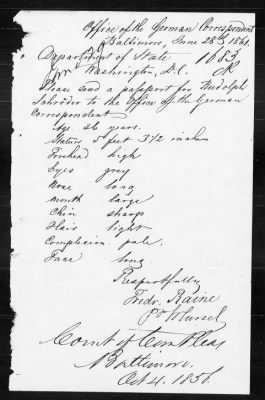 Office of the German Correspondent
Baltimore, June 28th 1861.
Department of State 1883
Washington, D.C.
Please send a passport for Rudolph
Schröder to the Office of the German
Correspondent
Age 26 years.
Stature 5 feet 3 1/2 inches
Forehead high
Eyes grey
Nose long
Mouth large
Chin sharp
Hair light
Complexion pale.
Face long
Respectfully
Fredr. Raine
Court of Com Pleas
Baltimore
Oct 4. 1856.